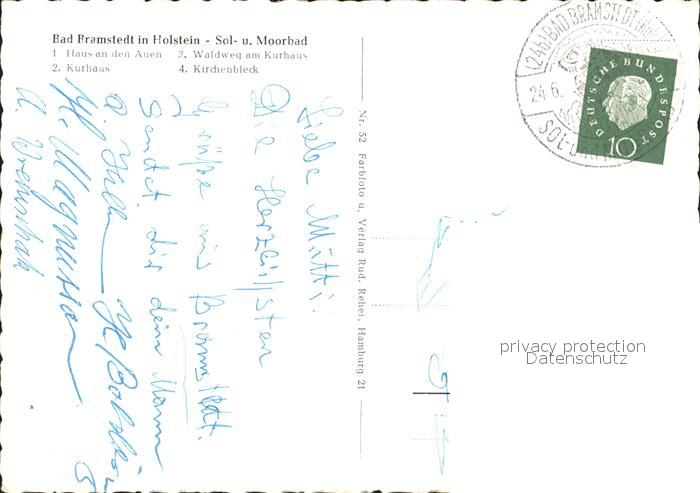 Bad Bramstedt in Holstein - Sol- u. Moorbad
1 Haus an den Auen 2. Waldweg am Kurhaus
2. Kurhaus 4. Kirchenbleck
Liebe Mutti!
Die Herzlichsten
Grüße aus Bramstedt.
Sendet dir dein Mann
H. Magnussen
Nr. 52 Farbfoto u. Verlag Rud. Reher, Hamburg 21
(24b) BAD BRAMSTEDT
24.6.
SOL-
DEUTSCHE BUNDESPOST
10
privacy protection
Datenschutz